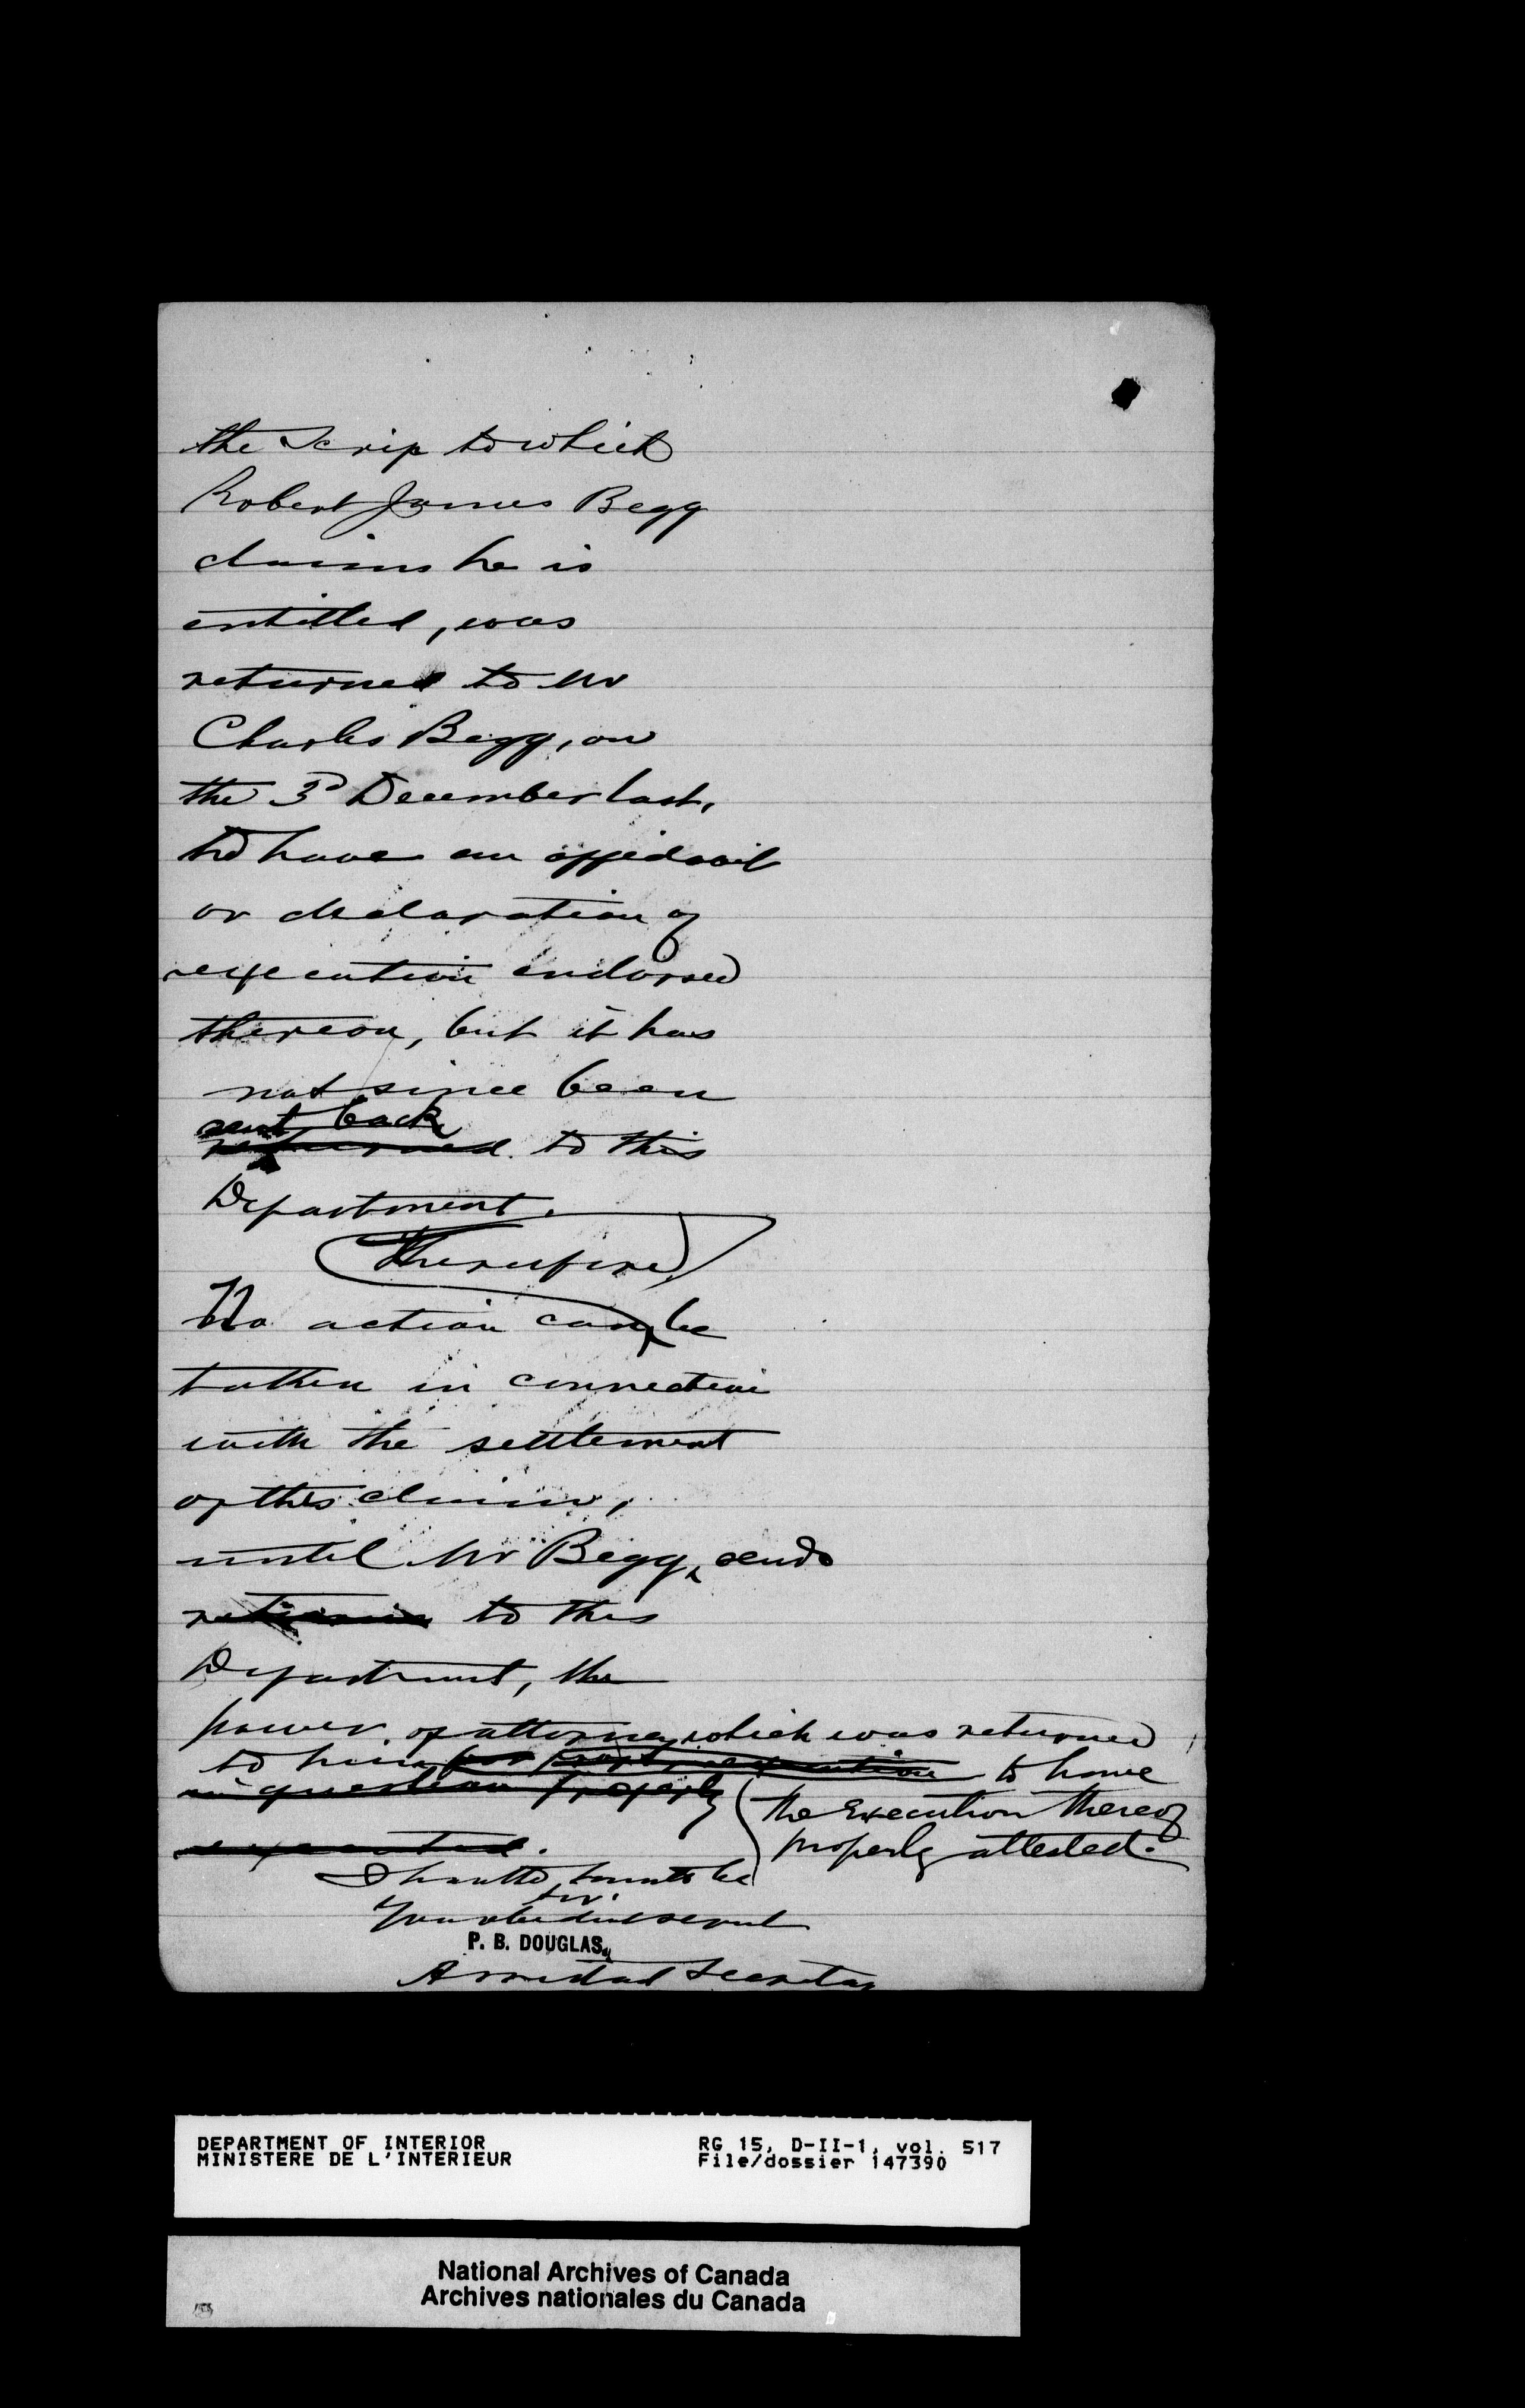 the Scrip to which
Robert James Begg
claims he is
entitled, was
returned to Mr
Charles Begg, on
the 3d December last,
to have an affidavit
or declaration of
execution endorsed
thereon, but it has
not since been
sent back
returned to this
Department.
Therefore
No action can be
taken in connection
with the settlement
of this claim,
until Mr Begg, sends
to this
Department, the
power of attorney which was returned
to him for proper execution to have
in question properly
the Execution thereof
executed.
properly attested.
I have the honor to be
Sir.
Your obedient servant
P. B. DOUGLAS,
Assistant Secretary
DEPARTMENT OF INTERIOR
MINISTERE DE L'INTERIEUR
RG 15, D-II-1, vol. 517
File/dossier 147390
National Archives of Canada
Archives nationales du Canada